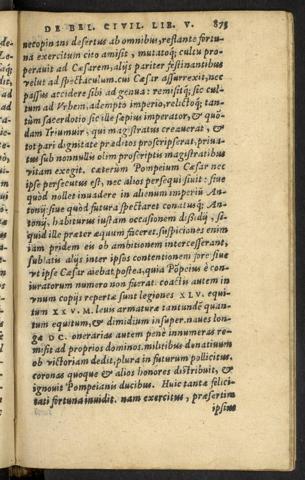 DE BEL. CIVIL. LIB. V. 875
necopinans desertus ab omnibus, restante fortu-
na exercitum cito amisit, mutatoq; cultu pro-
perauit ad Cæsarem, alijs pariter festinantibus
velut ad spectaculum. cui Cæsar assurrexit, nec
passus accidere sibi ad genua: remisitq; sic cul-
tum ad Vrbem, adempto imperio, relictoq; tan-
tùm sacerdotio sic ille sæpius imperator, & quo-
dam Triumuir, qui magistratus creauerat, &
tot pari dignitate præditos proscripserat, priua-
tus sub nonnullis olim proscriptis magistratibus
vitam exegit. cæterum Pompeium Cæsar nec
ipse persecutus est, nec alios persequi siuit: siue
quòd nollet inuadere in alienum imperiũ An-
tonij: siue quòd futura spectaret conatusq; An-
tonij, habiturus iustam occasionem dißidij, si
quid ille præter æquum faceret. suspiciones enim
iam pridem eis ob ambitionem intercesserant,
sublatis alijs inter ipsos contentionem fore: siue
vt ipse Cæsar aiebat postea, quia Põpeius è con-
iuratorum numero non fuerat. coactis autem in
vnum copijs repertæ sunt legiones XLV. equi-
tum XXV. M. leuis armatura tantundẽ quan-
tum equitum, & dimidium insuper. naues lon-
gæ DC. onerariæ autem penè innumeræ re-
misit ad proprios dominos. militibus donatiuum
ob victoriam dedit, plura in futurum pollicitus.
coronas quoque & alios honores distribuit, &
ignouit Pompeianis ducibus. Huic tantæ felici
tati fortuna inuidit. nam exercitus, præsertim
ipsius